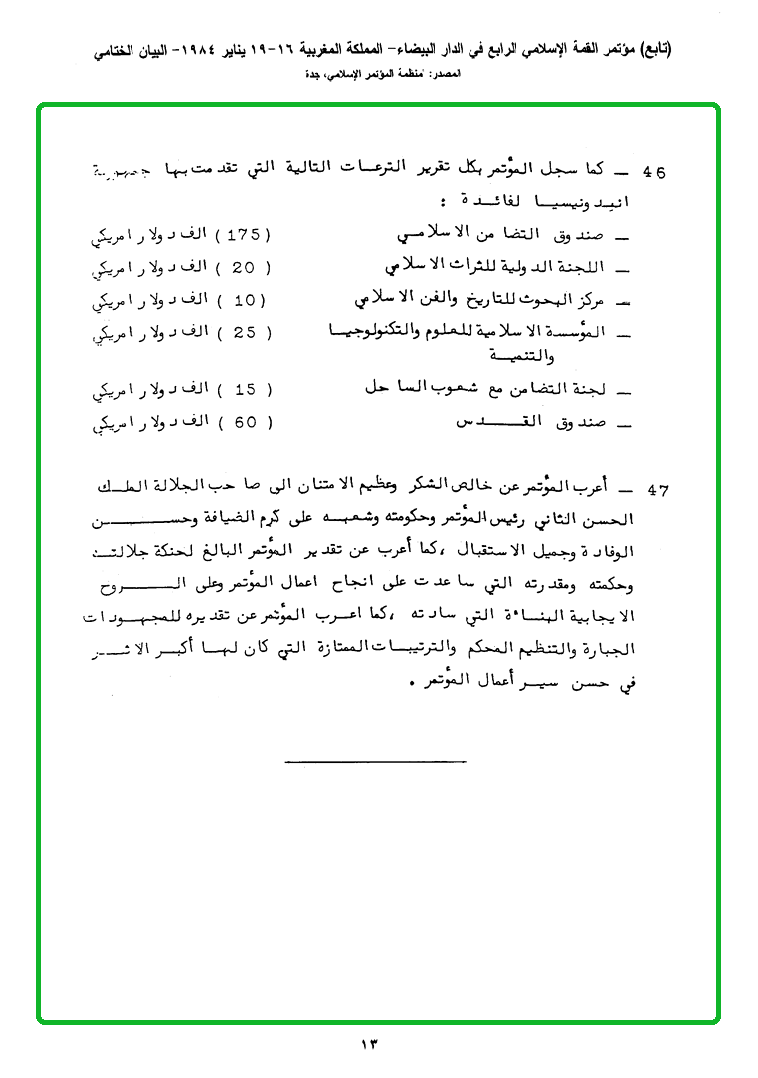 (تابع) مؤتمر القمة الإسلامي الرابع في الدار البيضاء- المملكة المغربية ١٦-١٩ يناير ١٩٨٤- البيان الختامي
المصدر: منظمة المؤتمر الإسلامي، جدة
46 – كما سجل المؤتمر بكل تقرير الترعات التالية التي تقدمت بها جمهورية
اندونيسيا لفائدة :
– صندوق التضامن الاسلامي ( 175 ) الف دولار امريكي
– اللجنة الدولية للتراث الاسلامي ( 20 ) الف دولار امريكي
– مركز البحوث للتاريخ والفن الاسلامي ( 10 ) الف دولار امريكي
– المؤسسة الاسلامية للعلوم والتكنولوجيا ( 25 ) الف دولار امريكي
والتنمية
– لجنة التضامن مع شعوب الساحل ( 15 ) الف دولار امريكي
– صندوق القدس ( 60 ) الف دولار امريكي
47 – أعرب المؤتمر عن خالص الشكر وعظيم الامتنان الى صاحب الجلالة الملك
الحسن الثاني رئيس المؤتمر وحكومته وشعبه على كرم الضيافة وحسن
الوفادة وجميل الاستقبال ، كما أعرب عن تقدير المؤتمر البالغ لحنكة جلالته
وحكمته ومقدرته التي ساعدت على انجاح اعمال المؤتمر وعلى الروح
الايجابية البناءة التي سادته ، كما اعرب المؤتمر عن تقديره للمجهودات
الجبارة والتنظيم المحكم والترتيبات الممتازة التي كان لها أكبر الاثر
في حسن سير أعمال المؤتمر .
١٣